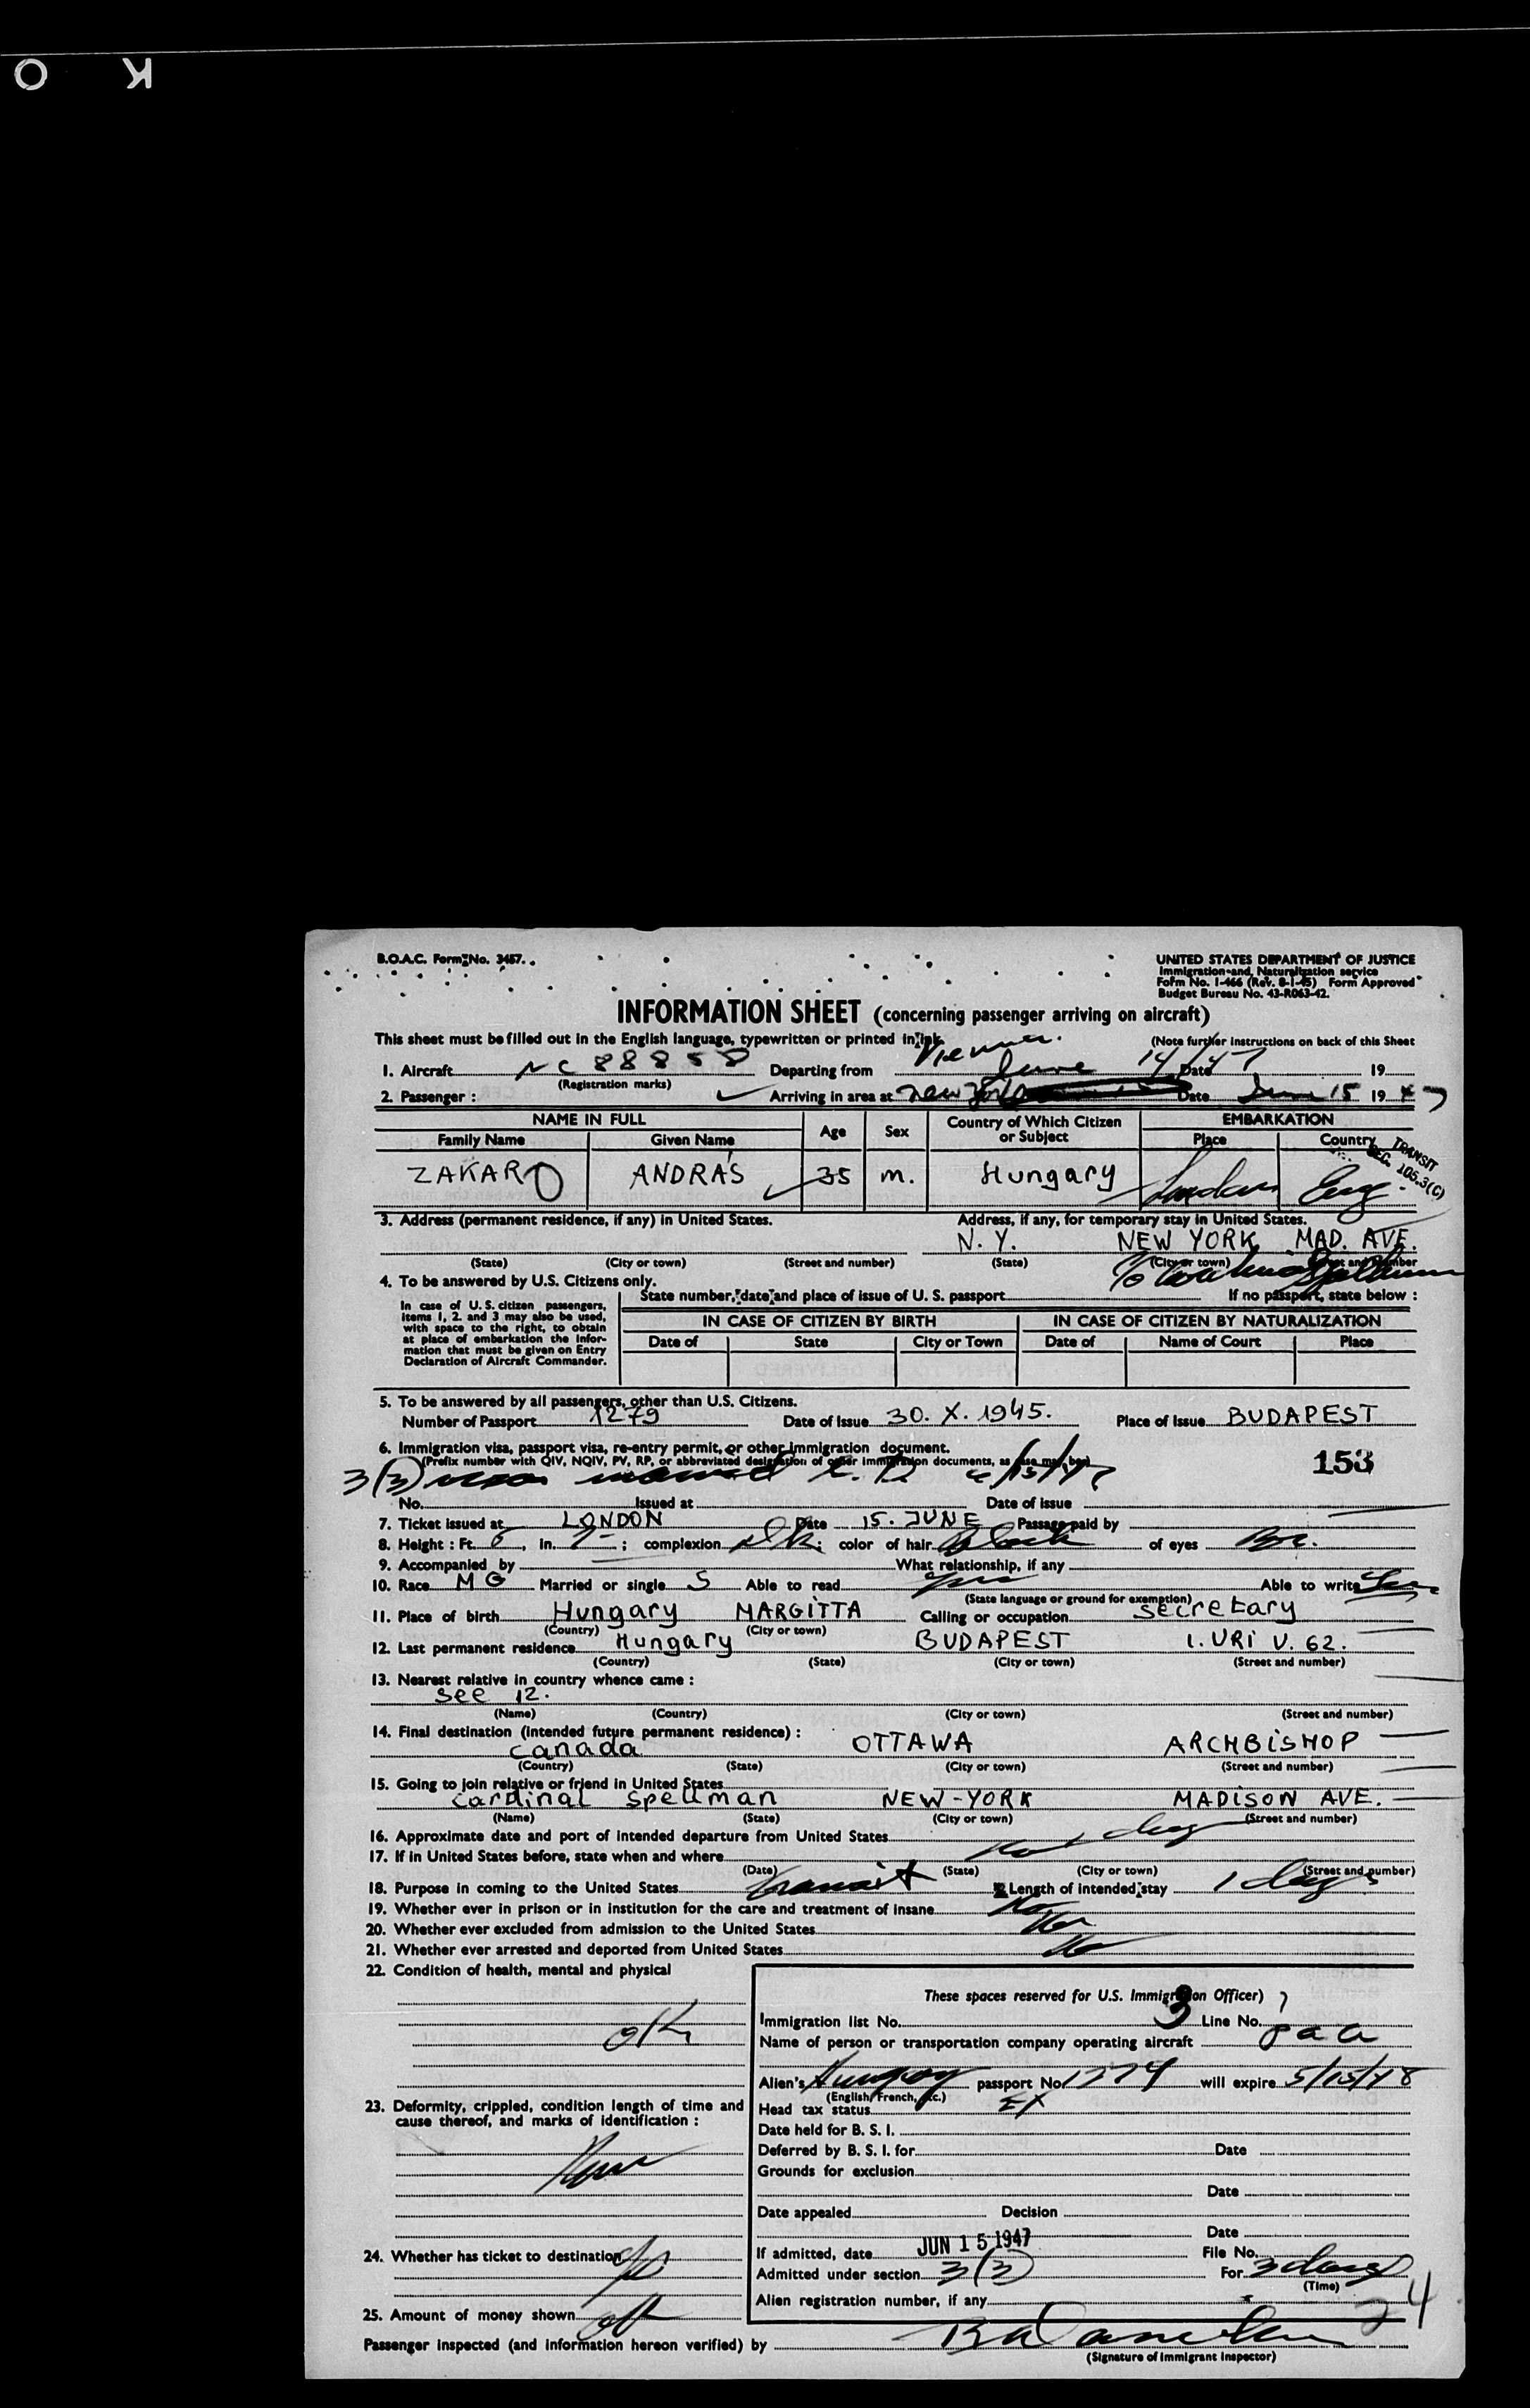 O K
B.O.A.C. Form No. 3457.
UNITED STATES DEPARTMENT OF JUSTICE
Immigration and Naturalization service
Form No. 1-466 (Rev. 8-1-45) Form Approved
Budget Bureau No. 43-R063-42.
INFORMATION SHEET (concerning passenger arriving on aircraft)
This sheet must be filled out in the English language, typewritten or printed in ink.
(Note further instructions on back of this Sheet
1. Aircraft NC 88858 Departing from Vienna. June 14/47 Date 19
(Registration marks)
2. Passenger : Arriving in area at New York Date June 15 1947
NAME IN FULL Age Sex Country of Which Citizen or Subject EMBARKATION
Family Name Given Name Place Country
TRANSIT
SEC. 105.3(C)
ZAKAR ANDRÁS 35 m. Hungary London Eng.
3. Address (permanent residence, if any) in United States. Address, if any, for temporary stay in United States.
N.Y. NEW YORK MAD. AVE.
(State) (City or town) (Street and number) (State) (City or town) (Street and Number
c/o Cardinal Spellman
4. To be answered by U.S. Citizens only.
State number, date and place of issue of U. S. passport If no passport, state below :
In case of U.S. citizen passengers,
items 1, 2. and 3 may also be used,
with space to the right, to obtain
at place of embarkation the infor-
mation that must be given on Entry
Declaration of Aircraft Commander.
IN CASE OF CITIZEN BY BIRTH IN CASE OF CITIZEN BY NATURALIZATION
Date of State City or Town Date of Name of Court Place
5. To be answered by all passengers, other than U.S. Citizens.
Number of Passport 1279 Date of Issue 30. X. 1945. Place of Issue BUDAPEST
6. Immigration visa, passport visa, re-entry permit, or other immigration document.
(Prefix number with QIV, NQIV, PV, RP, or abbreviated designation of other immigration documents, as case may be)
153
3(3) waived 6/15/47
No. Issued at Date of issue
7. Ticket issued at LONDON Date 15. JUNE Passage paid by
8. Height : Ft. 6, In. 7 ; complexion dk; color of hair Black of eyes Br.
9. Accompanied by What relationship, if any
10. Race MG Married or single S Able to read yes Able to write yes
(State language or ground for exemption)
11. Place of birth Hungary MARGITTA Calling or occupation secretary
(Country) (City or town)
12. Last permanent residence Hungary BUDAPEST I. URI U. 62.
(Country) (State) (City or town) (Street and number)
13. Nearest relative in country whence came :
see 12.
(Name) (Country) (City or town) (Street and number)
14. Final destination (intended future permanent residence) :
canada OTTAWA ARCHBISHOP
(Country) (State) (City or town) (Street and number)
15. Going to join relative or friend in United States
cardinal spellman NEW-YORK MADISON AVE.
(Name) (State) (City or town) (Street and number)
16. Approximate date and port of intended departure from United States
17. If in United States before, state when and where
(Date) (State) (City or town) (Street and number)
18. Purpose in coming to the United States transit Length of intended stay 1 days
19. Whether ever in prison or in institution for the care and treatment of insane No
20. Whether ever excluded from admission to the United States No
21. Whether ever arrested and deported from United States No
22. Condition of health, mental and physical
ok
23. Deformity, crippled, condition length of time and
cause thereof, and marks of identification :
None
24. Whether has ticket to destination
25. Amount of money shown ok
These spaces reserved for U.S. Immigration Officer)
Immigration list No. 3 Line No. 7
Name of person or transportation company operating aircraft paa
Alien's Hungary passport No. 1279 will expire 5/15/48
(English, French, etc.)
Head tax status EX
Date held for B. S. I.
Deferred by B. S. I. for Date
Grounds for exclusion
Date
Date appealed Decision
Date
If admitted, date JUN 15 1947 File No.
Admitted under section 3(3) For 3 days
(Time)
Alien registration number, if any
24
Passenger inspected (and information hereon verified) by
(Signature of Immigrant Inspector)